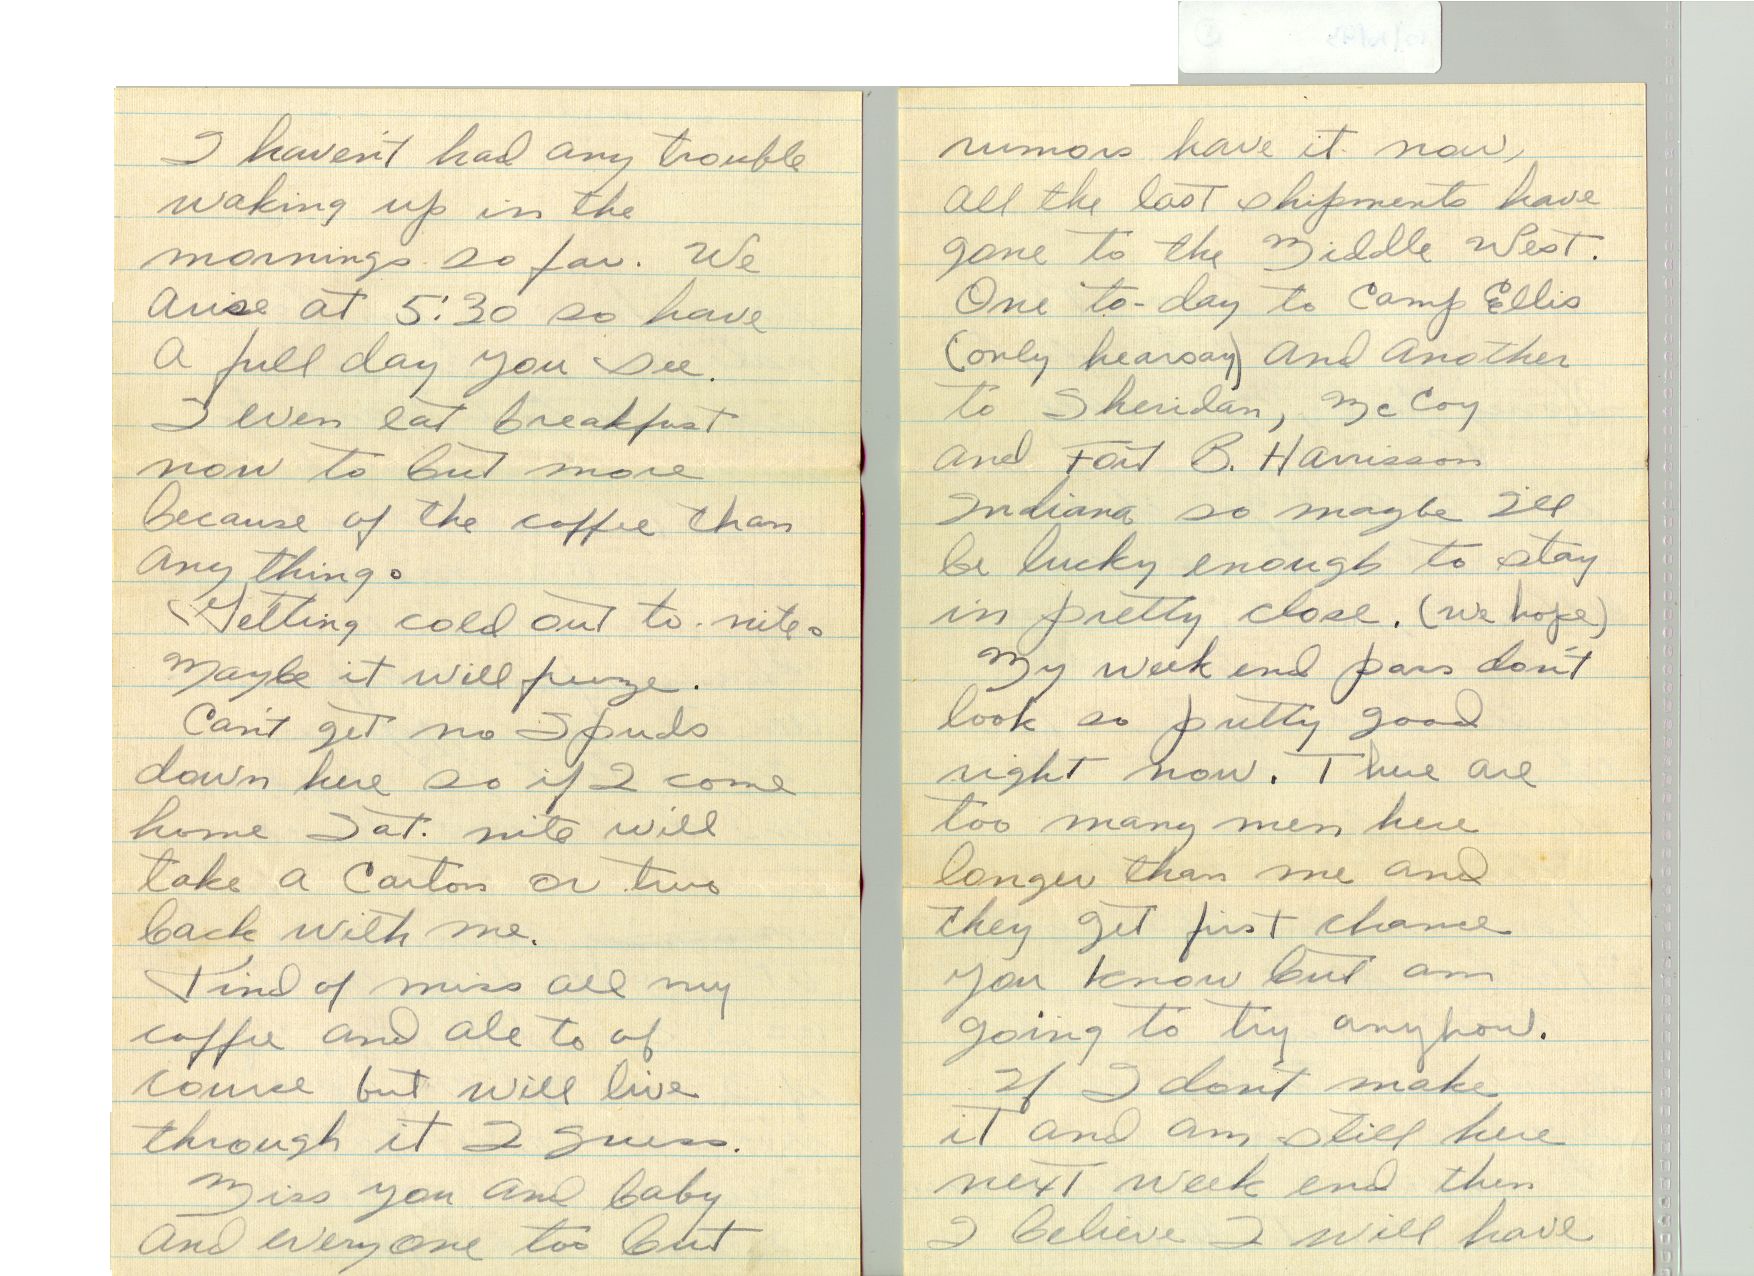 I haven't had any trouble
waking up in the
mornings so far. We
arise at 5:30 so have
a full day you see.
I even eat breakfast
now to but more
because of the coffee than
any thing.
Getting cold out to-nite.
Maybe it will freeze.
Can't get no Spuds
down here so if I come
home Sat. nite will
take a Carton or two
back with me.
Kind of miss all my
coffee and ale to of
course but will live
through it I guess.
Miss you and baby
and everyone too but
rumors have it now,
all the last shipments have
gone to the Middle West.
One to-day to Camp Ellis
(only hearsay) and another
to Sheridan, McCoy
and Fort B. Harrisson
Indiana so maybe I'll
be lucky enough to stay
in pretty close. (we hope)
My week end pass don't
look so pretty good
right now. There are
too many men here
longer than me and
they get first chance
you know but am
going to try anyhow.
If I don't make
it and am still here
next week end then
I believe I will have